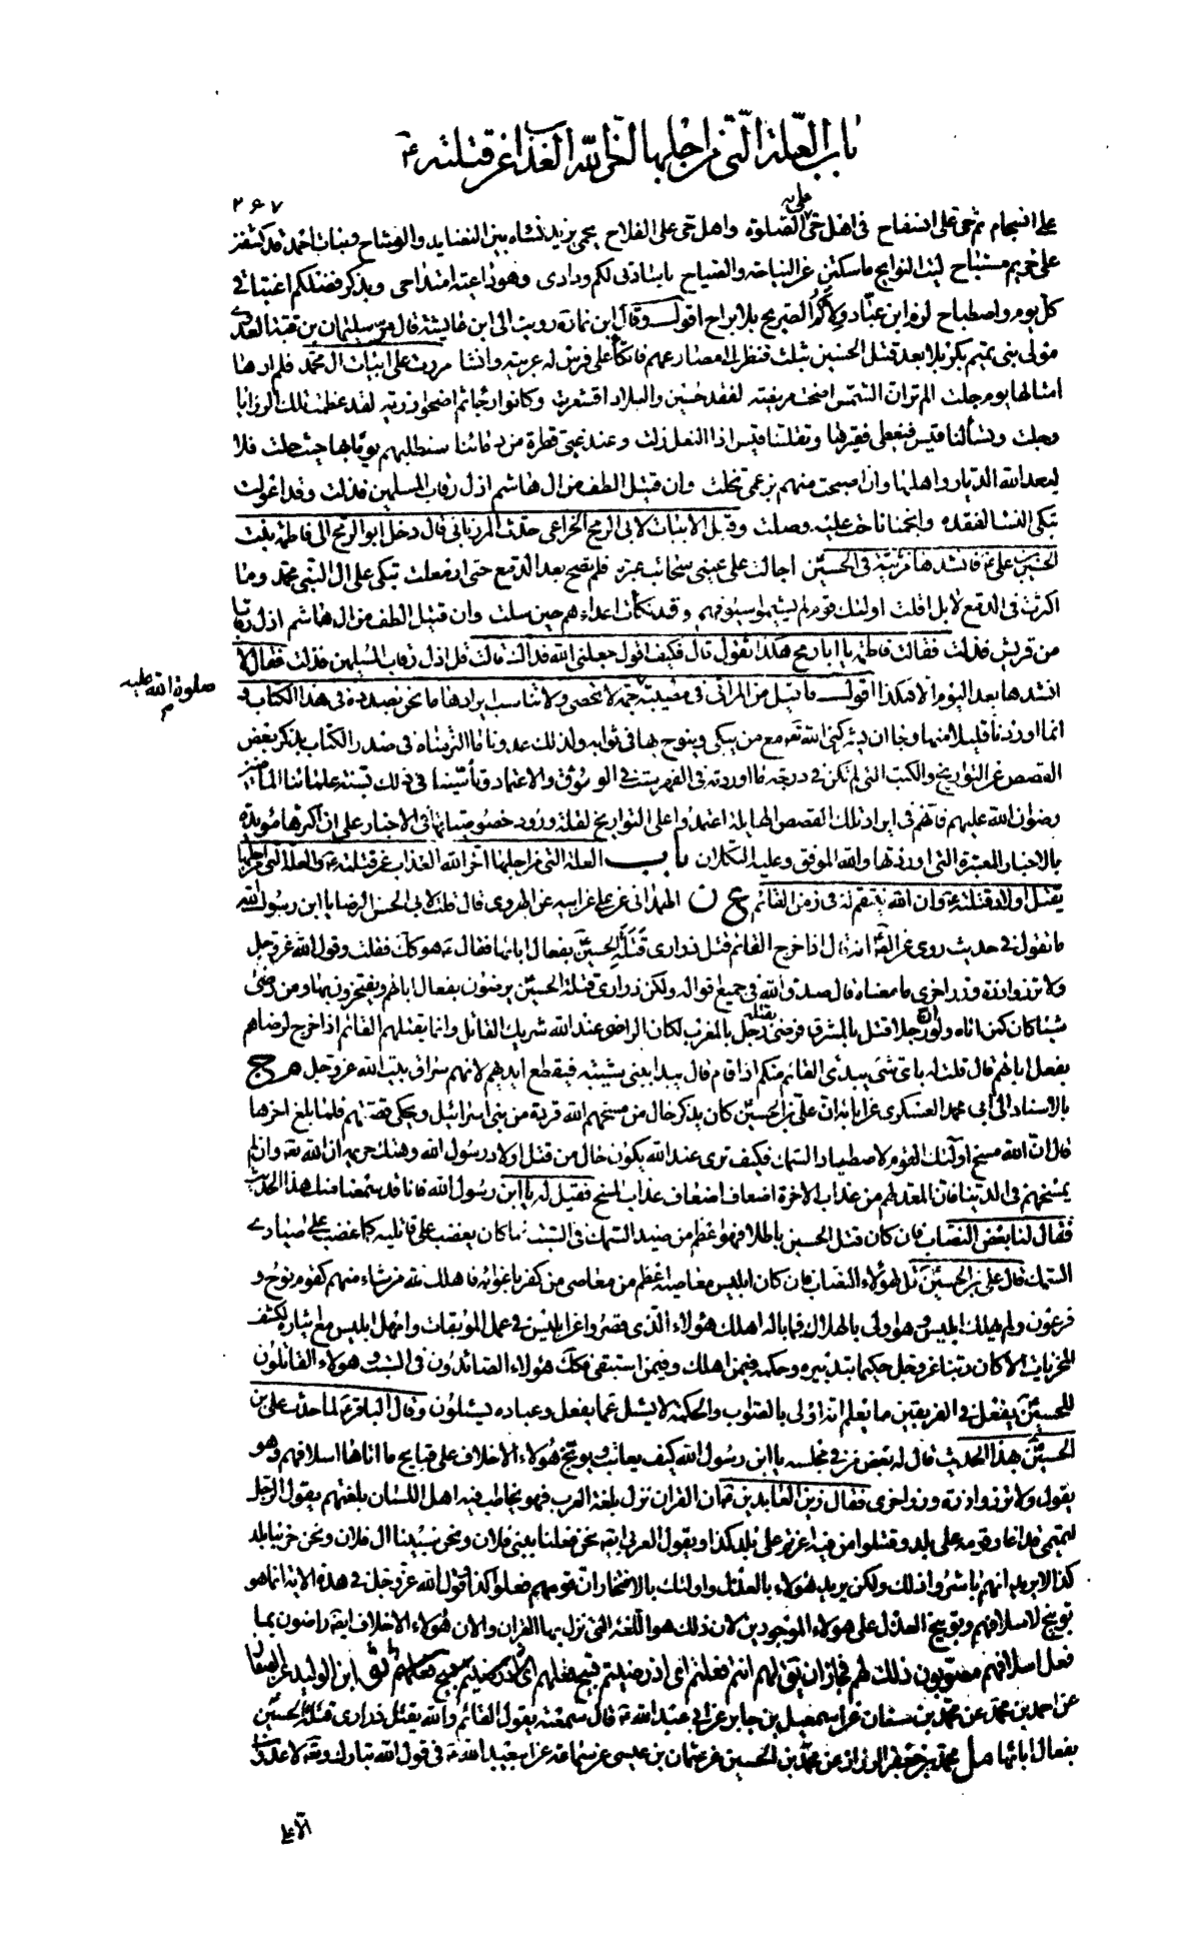 باب العلة التي من اجلها اخر الله العذاب عن قتلته ع
٢٦٧
على انسجام ثم حى على السفاح فى اهل حى على الصلوة واهل حى على الفلاح يحمى يزيد نساءه بين النضايد والوشاح وبنات احمد قد كشفن
على حريم مستباح ليت النوايح ما سكتن عن النياحة والصياح يا سادتى لكم ودادى وهو داعية امتداحى وبذكر فضلكم اغتباقى
كل يوم واصطباح لزم ابن عباد ولاءكم الصريح بلا براح اقول وقال ابن نما ره رويت الى ابن عايشة قال مر سليمان بن قتة العدوى
مولى بنى تميم بكربلا بعد قتل الحسين بثلث فنظر الى مصارعهم فاتكأ على فرس له عربية وانشا مررت على ابيات ال محمد فلم ارها
امثالها يوم حلت الم تر ان الشمس اضحت مريضة لفقد حسين والبلاد اقشعرت وكانوا رجاء ثم اضحوا رزية لقد عظمت تلك الرزايا
وجلت وتسألنا قيس فنعطى فقيرها وتقتلنا قيس اذا النعل زلت وعند غنى قطرة من دمائنا سنطلبهم يوما بها حيث حلت فلا
يبعد الله الديار واهلها وان اصبحت منهم بزعمى تخلت وان قتيل الطف من ال هاشم اذل رقاب المسلمين فذلت وقد اعولت
تبكى النساء لفقده وانجمنا ناحت عليه وصلت وقيل الابيات لابى الرمح الخزاعى حدث المرزبانى قال دخل ابو الرمح الى فاطمة بنت
الحسين بن على ع فانشدها مرثية فى الحسين ع اجالت على عينى سحائب عبرة فلم تصح بعد الدمع حتى ارمعلت تبكى على ال النبى محمد وما
اكثرت فى الدمع لا بل اقلت اولئك قوم لم يشيموا سيوفهم وقد نكأت اعداءهم حين سلت وان قتيل الطف من ال هاشم اذل رقابا
من قريش فذلت فقالت فاطمة يا ابا رمح هكذا تقول قال فكيف اقول جعلنى الله فداك قالت قل اذل رقاب المسلمين فذلت فقال لا
انشدها بعد اليوم الا هكذا اقول ما قيل من المراثى فى مصيبته جمة لا تحصى ولا تناسب ايرادها ما نحن بصدده فى هذا الكتاب و
صلوة الله عليه
انما اوردنا قليلا منها رجاء ان يشركنى الله تعه مع من يبكى وينوح بها فى ثوابه ولذلك عدونا ما التزمناه فى صدر الكتاب بذكر بعض
القصص عن التواريخ والكتب التى لم تكن فى درجة ما اوردته فى الفهرست فى الوثوق والاعتماد وتأسينا فى ذلك بسنة علمائنا الماضين
رضوان الله عليهم فانهم فى ايراد تلك القصص الهايلة اعتمدوا على التواريخ لقلة ورود خصوصياتها فى الاخبار على ان اكثرها مؤيدة
بالاخبار المعتبرة التى اوردتها والله الموفق وعليه التكلان باب العلة التى من اجلها اخر الله العذاب عن قتلته ع والعلة التى من اجلها
يقتل اولاد قتلته ع وان الله ينتقم له فى زمن القائم ع ع ن الهمدانى عن على عن ابيه عن الهروى قال قلت لابى الحسن الرضا يا ابن رسول الله
ما تقول فى حديث روى عن الصادق ع انه قال اذا خرج القائم قتل ذرارى قتلة الحسين ع بفعال ابائها فقال ع هو كك فقلت وقول الله عز وجل
ولا تزر وازرة وزر اخرى ما معناه قال صدق الله فى جميع اقواله ولكن ذرارى قتلة الحسين يرضون بفعال ابائهم ويفتخرون بها ومن رضى
شيئا كان كمن اتاه ولو ان رجلا قتل بالمشرق فرضى بقتله رجل بالمغرب لكان الراضى عند الله شريك القاتل وانما يقتلهم القائم اذا خرج لرضاهم
بفعل ابائهم قال قلت له باى شئ يبدئ القائم منكم اذا قام قال يبدأ ببنى شيبة فيقطع ايديهم لانهم سراق بيت الله عز وجل م ج
بالاسناد الى ابى محمد العسكرى عن ابائه ان على بن الحسين ع كان يذكر حال من مسخهم الله قردة من بنى اسرائيل ويحكى قصتهم فلما بلغ اخرها
قال ان الله مسخ اولئك القوم لاصطياد السمك فكيف ترى عند الله يكون حال من قتل اولاد رسول الله وهتك حريمه ان الله تعه وان لم
يمسخهم فى الدنيا فان المعد لهم من عذاب الاخرة اضعاف اضعاف عذاب المسخ فقيل له يا ابن رسول الله فانا قد سمعنا منك هذا الحديث
فقال لنا بعض النصاب فان كان قتل الحسين باطلا فهو اعظم من صيد السمك فى السبت افما كان يغضب على قاتليه كما غضب على صيادى
السمك قال على بن الحسين ع قل لهؤلاء النصاب فان كان ابليس معاصيه اعظم من معاصى من كفر باغوائه فاهلك الله من شاء منهم كقوم نوح و
فرعون ولم يهلك ابليس وهو اولى بالهلاك فما باله اهلك هؤلاء الذى قصروا عن ابليس فى عمل الموبقات وامهل ابليس مع ايثاره لكشف
المخزيات الا كان ربنا عز وجل حكيما بتدبيره وحكمه فيمن اهلك وفيمن استبقى فكك هؤلاء الصائدون فى السبت وهؤلاء القاتلون
للحسين ع يفعل فى الفريقين ما يعلم انه اولى بالصواب والحكمة لا يسئل عما يفعل وعباده يسئلون وقال الباقر ع لما حدث على بن
الحسين ع بهذا الحديث قال له بعض من فى مجلسه يا ابن رسول الله كيف يعاتب ويوبخ هؤلاء الاخلاف على قبايح ما اتاها اسلافهم وهو
يقول ولا تزر وازرة وزر اخرى فقال زين العابدين ع ان القران نزل بلغة العرب فهو يخاطب فيه اهل اللسان بلغتهم يقول الرجل
لتميمى قد اغار قومه على بلد وقتلوا من فيه اغرتم على بلد كذا ويقول العربى ايضه نحن فعلنا ببنى فلان ونحن سبينا ال فلان ونحن خربنا بلد
كذا لا يريد انهم باشروا ذلك ولكن يريد هؤلاء بالعذل واولئك بالافتخار ان قومهم فعلوا كذا فقول الله عز وجل فى هذه الايه انما هو
توبيخ لاسلافهم وتوبيخ العذل على هؤلاء الموجودين لان ذلك هو اللغة التى نزل بها القران والان هؤلاء الاخلاف ايضه راضون بما
فعل اسلافهم مصوبون ذلك لهم فجاز ان يقال لهم انتم فعلتم اى اذ رضيتم قبيح فعلهم ثو ابن الوليد عن الصفار
عن احمد بن محمد عن محمد بن سنان عن اسمعيل بن جابر عن ابى عبد الله ع قال سمعته يقول القائم والله يقتل ذرارى قتلة الحسين
بفعال ابائها مل محمد بن جعفر الرزاز عن محمد بن الحسين عن عثمان بن عيسى عن سماعة عن ابى عبد الله ع فى قول الله تبارك وتعه لا عدوان
الا على